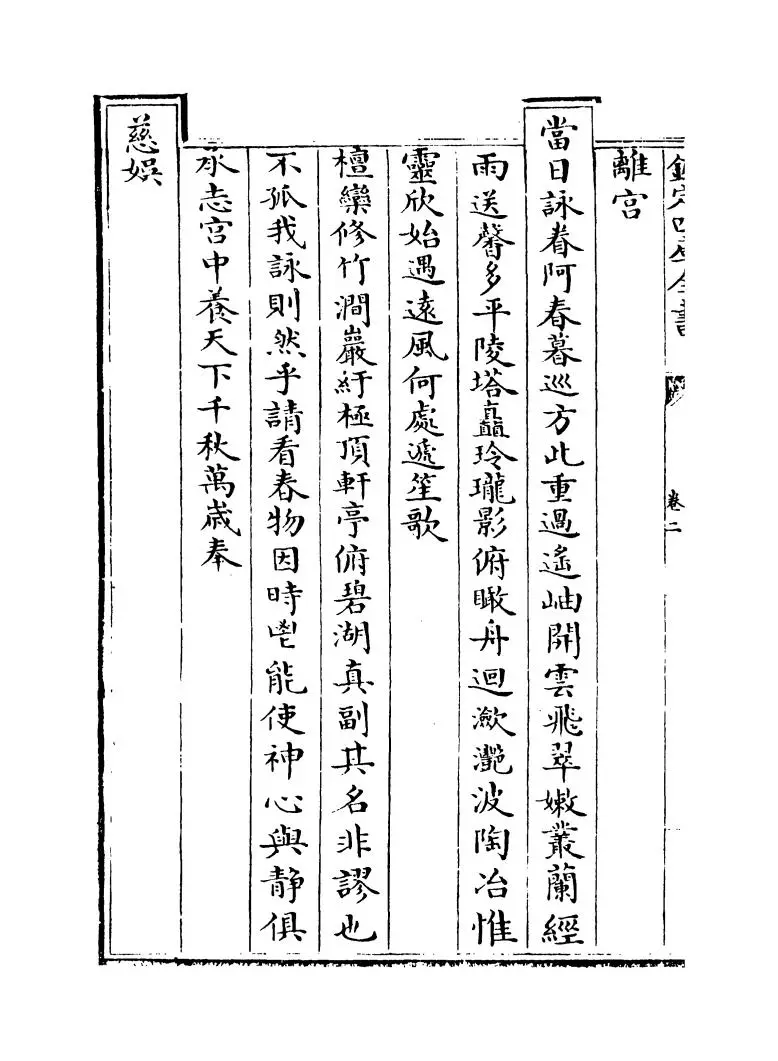 欽定四庫全書
卷二
離宮
當日詠眷阿春暮巡方此重過遙岫開雲飛翠嫩叢蘭經
雨送馨多平陵塔矗玲瓏影俯瞰舟迴瀲灔波陶冶惟
靈欣始遇遠風何處遞笙歌
檀欒修竹澗巖紆極頂軒亭俯碧湖真副其名非謬也
不孤我詠則然乎請看春物因時鬯能使神心與静俱
承志宮中養天下千秋萬歲奉
慈娛